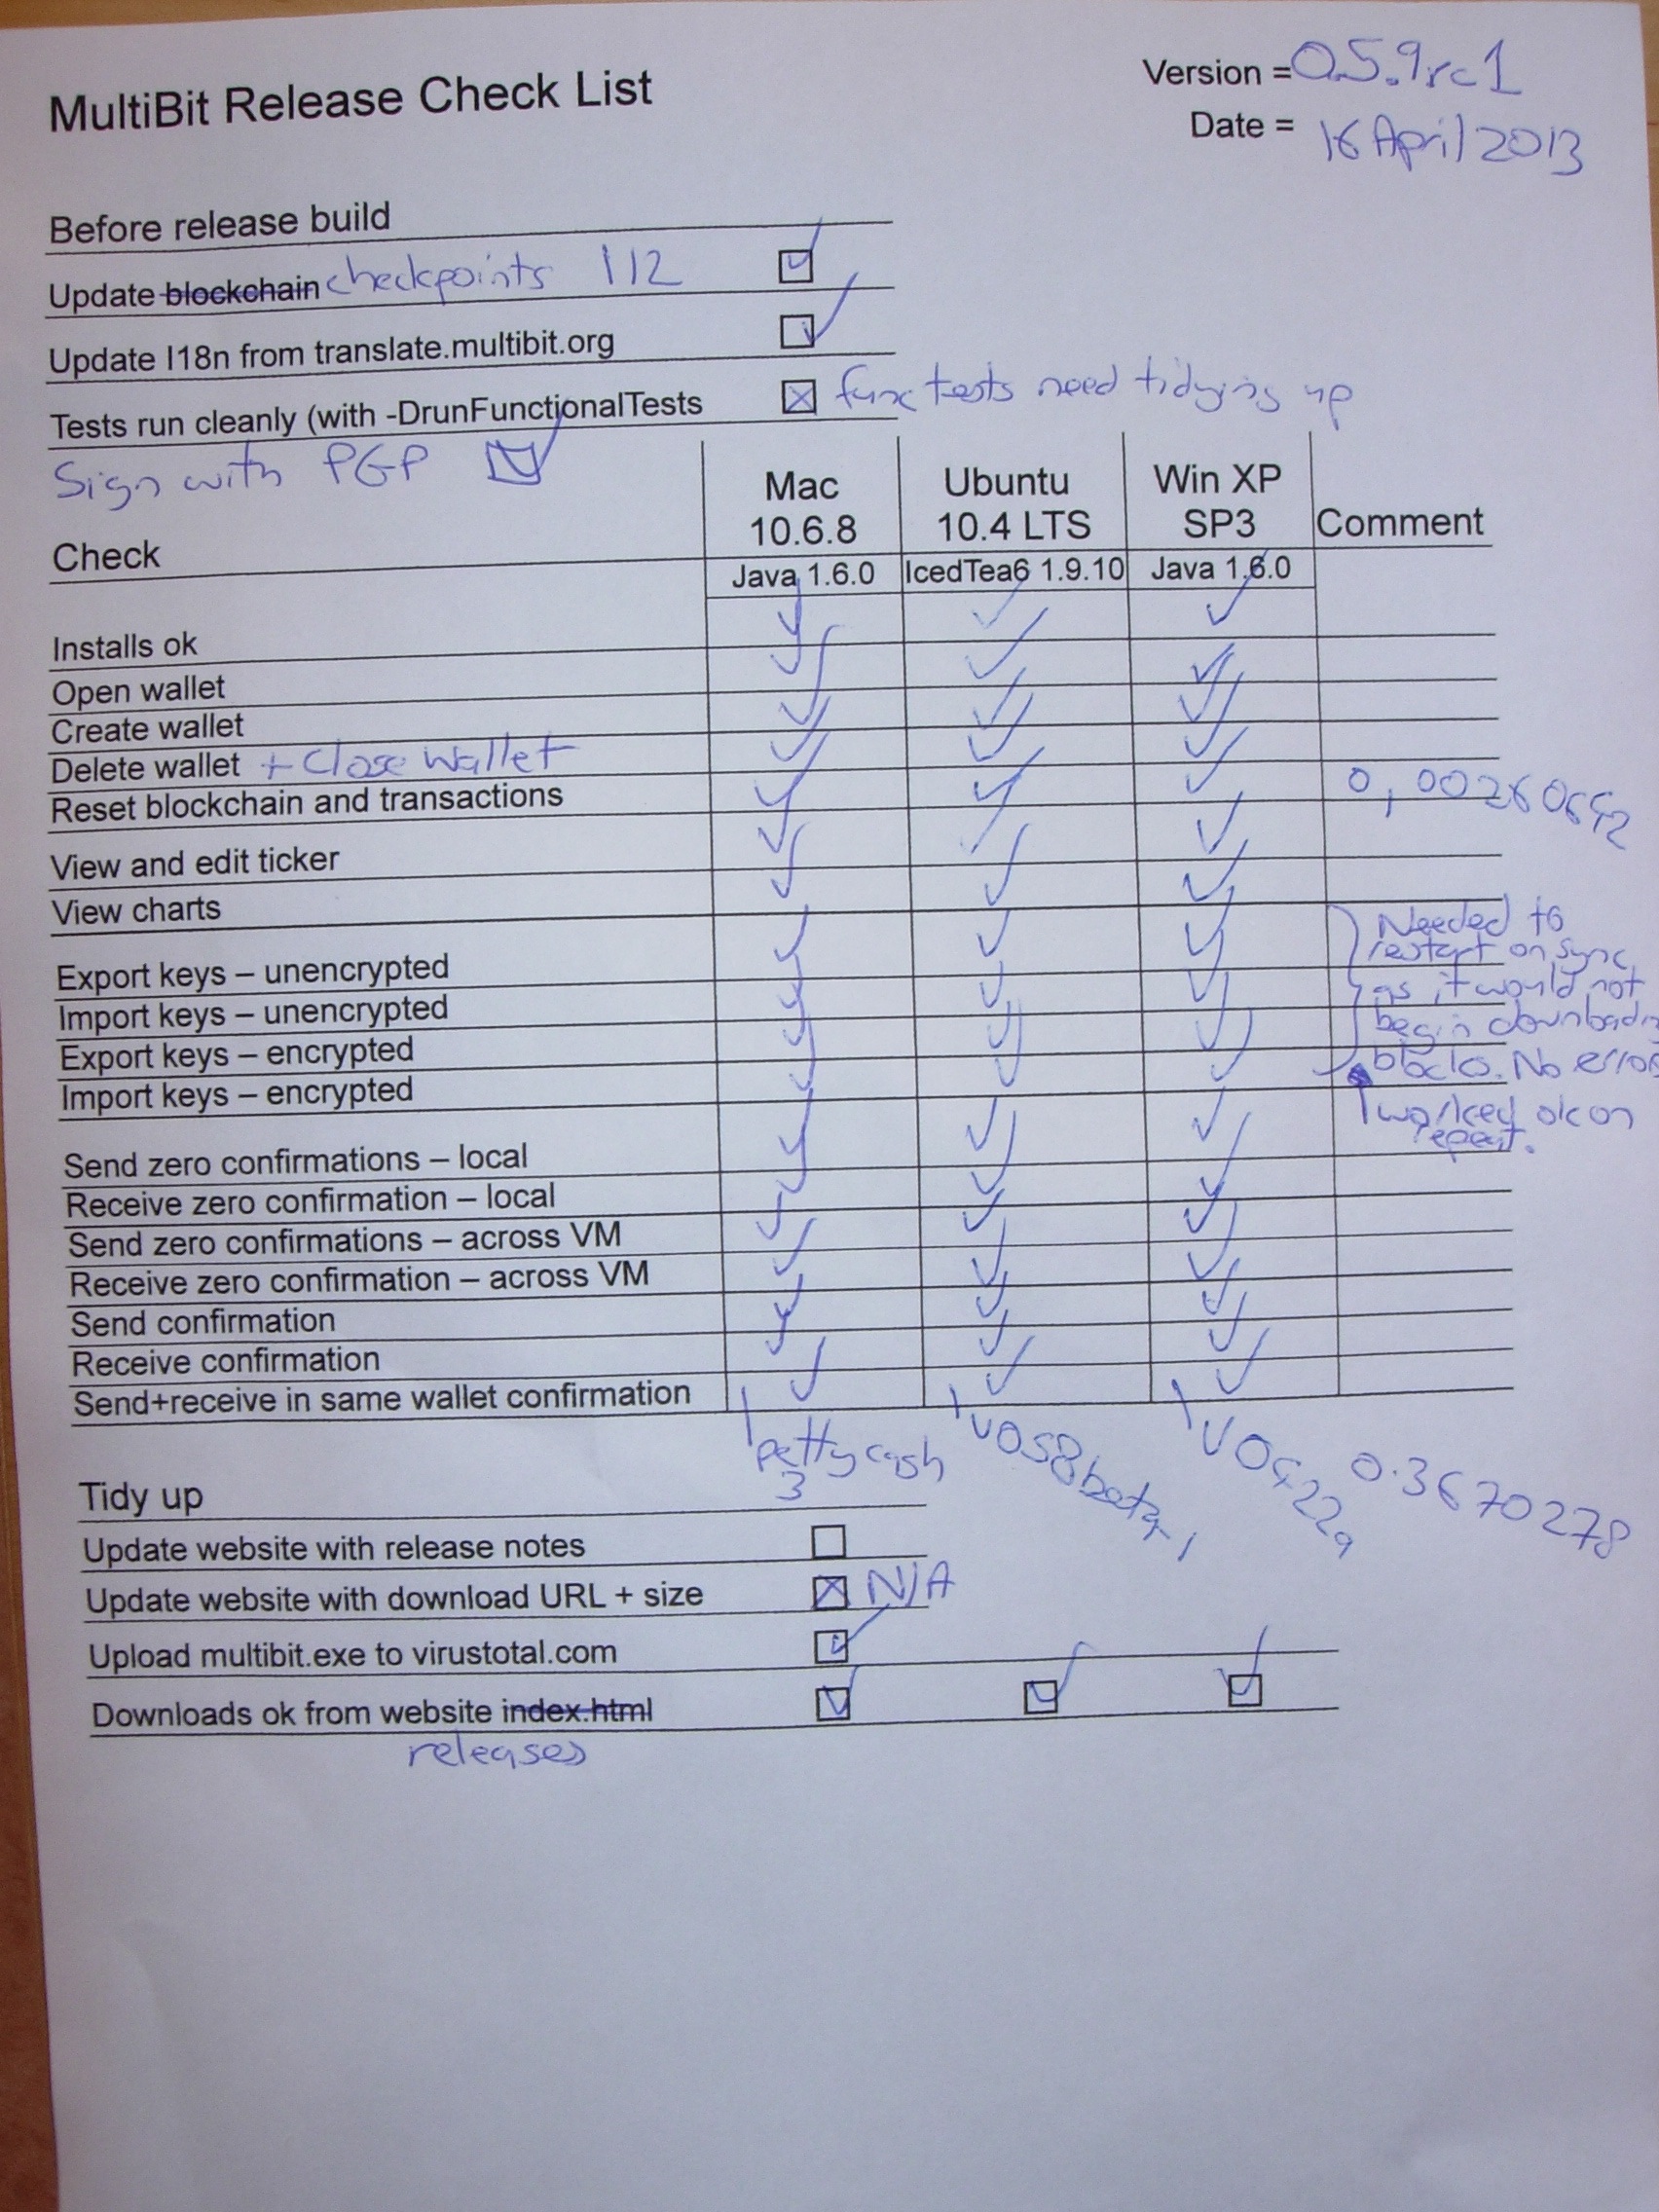 MultiBit Release Check List
Version = 0.5.9rc1
Date = 16 April 2013
Before release build
Update blockchain checkpoints 112
Update I18n from translate.multibit.org
Tests run cleanly (with -DrunFunctionalTests func tests need tidying up
Sign with PGP
Check Mac 10.6.8 Ubuntu 10.4 LTS Win XP SP3 Comment
Java 1.6.0 IcedTea6 1.9.10 Java 1.6.0
Installs ok
Open wallet
Create wallet
Delete wallet + Close wallet
Reset blockchain and transactions
View and edit ticker
View charts
Export keys – unencrypted
Import keys – unencrypted
Export keys – encrypted
Import keys – encrypted
Needed to
restart on sync
as it would not
begin downloading
blocks. No error
worked ok on
repeat.
Send zero confirmations – local
Receive zero confirmation – local
Send zero confirmations – across VM
Receive zero confirmation – across VM
Send confirmation
Receive confirmation
Send+receive in same wallet confirmation
petty cash
3
v058beta-1
0.3670278
Tidy up
Update website with release notes
Update website with download URL + size N/A
Upload multibit.exe to virustotal.com
Downloads ok from website index.html
releases